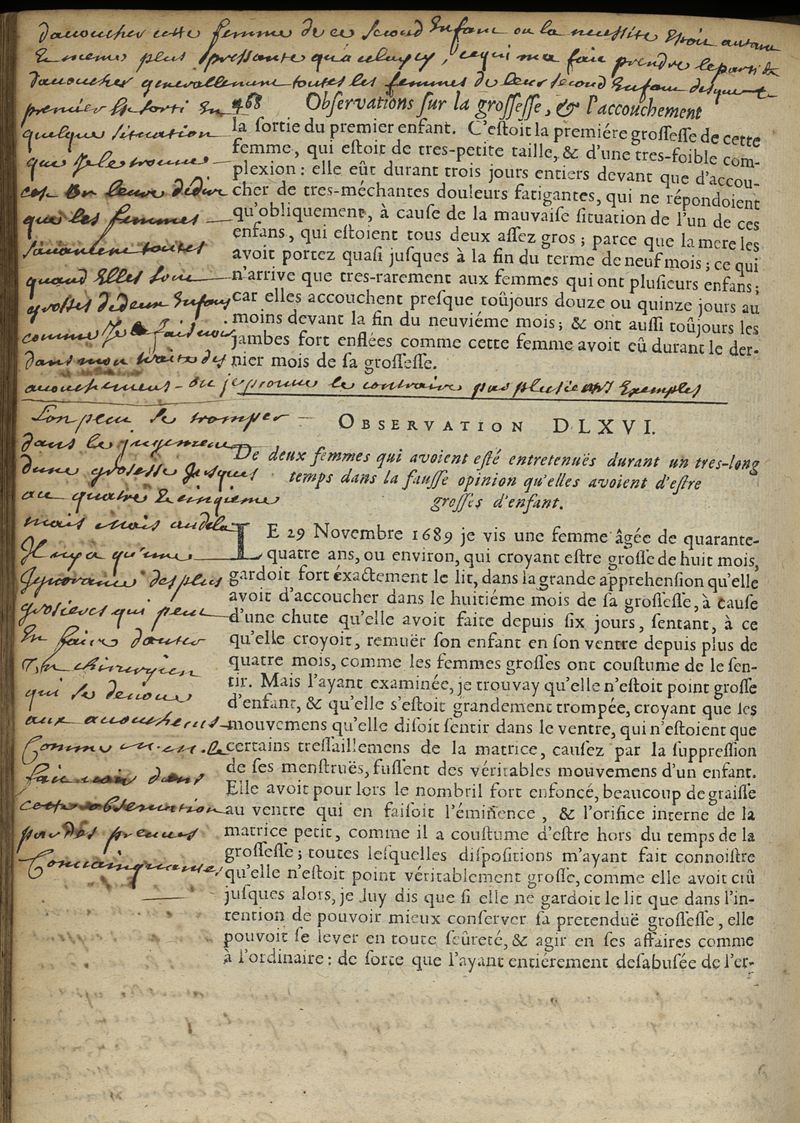 d'accoucher cette femme de ce second Enfant ou la necessité Etoit autant
Et meme plus pressante qu'a celuycy, ce qui ma fait prendre le parti
daccoucher generallement toutes les femmes de leur second Enfant des que
468 Observations ſur la groſſeſſe, & l'accouchement
la ſortie du premier enfant. C'eſtoit la premiére groſſeſſe de cette
femme, qui eſtoit de tres-petite taille, & d'une tres-foible com-
plexion : elle eût durant trois jours entiers devant que d'accou-
cher de tres-méchantes douleurs fatigantes, qui ne répondoient
qu'obliquement, à cauſe de la mauvaiſe ſituation de l'un de ces
enfans, qui eſtoient tous deux aſſez gros ; parce que la mere les
avoit portez quaſi juſques à la fin du terme de neuf mois ; ce qui
n'arrive que tres-rarement aux femmes qui ont pluſieurs enfans ;
car elles accouchent preſque toûjours douze ou quinze jours au
moins devant la fin du neuviéme mois ; & ont auſſi toûjours les
jambes fort enflées comme cette femme avoit eû durant le der-
nier mois de ſa groſſeſſe.
premier Est sorti En
quelque situation
que
les femmes
toutes
quand Elles sont
grosses de deux Enfans
comme Je
dans mon traité des
accouchements ou je prouve le contraire par plusieurs Exemples
OBSERVATION DLXVI.
De deux femmes qui avoient eſté entretenuës durant un tres-long
temps dans la fauſſe opinion qu'elles avoient d'eſtre
groſſes d'enfant.
LE 29 Novembre 1689 je vis une femme âgée de quarante-
quatre ans, ou environ, qui croyant eſtre groſſe de huit mois,
gardoit fort éxactement le lit, dans la grande apprehenſion qu'elle
avoit d'accoucher dans le huitiéme mois de ſa groſſeſſe, à cauſe
d'une chute qu'elle avoit faite depuis ſix jours, ſentant, à ce
qu'elle croyoit, remuër ſon enfant en ſon ventre depuis plus de
quatre mois, comme les femmes groſſes ont couſtume de le ſen-
tir. Mais l'ayant examinée, je trouvay qu'elle n'eſtoit point groſſe
d'enfant, & qu'elle s'eſtoit grandement trompée, croyant que les
mouvemens qu'elle diſoit ſentir dans le ventre, qui n'eſtoient que
certains treſſaillemens de la matrice, cauſez par la ſuppreſſion
de ſes menſtruës, fuſſent des véritables mouvemens d'un enfant.
Elle avoit pour lors le nombril fort enfoncé, beaucoup de graiſſe
au ventre qui en faiſoit l'éminence, & l'orifice interne de la
matrice petit, comme il a couſtume d'eſtre hors du temps de la
groſſeſſe ; toutes leſquelles diſpoſitions m'ayant fait connoiſtre
qu'elle n'eſtoit point véritablement groſſe, comme elle avoit crû
juſques alors, je luy dis que ſi elle ne gardoit le lit que dans l'in-
tention de pouvoir mieux conſerver ſa pretenduë groſſeſſe, elle
pouvoit ſe lever en toute ſeûreté, & agir en ſes affaires comme
à l'ordinaire : de ſorte que l'ayant entiérement deſabuſée de l'er-
Lon peut se tromper
dans le jugement
dune grossesse Jusques
au quatre Et cinquieme
mois mais audela
Il ny a qu'une
Ignorance des plus
grosieres qui peut
En faire douter
Un chirurgien
qui se devoue
aux accouchements
Comme
fait voir dans
cette observation
par des preuves
Convainquantes